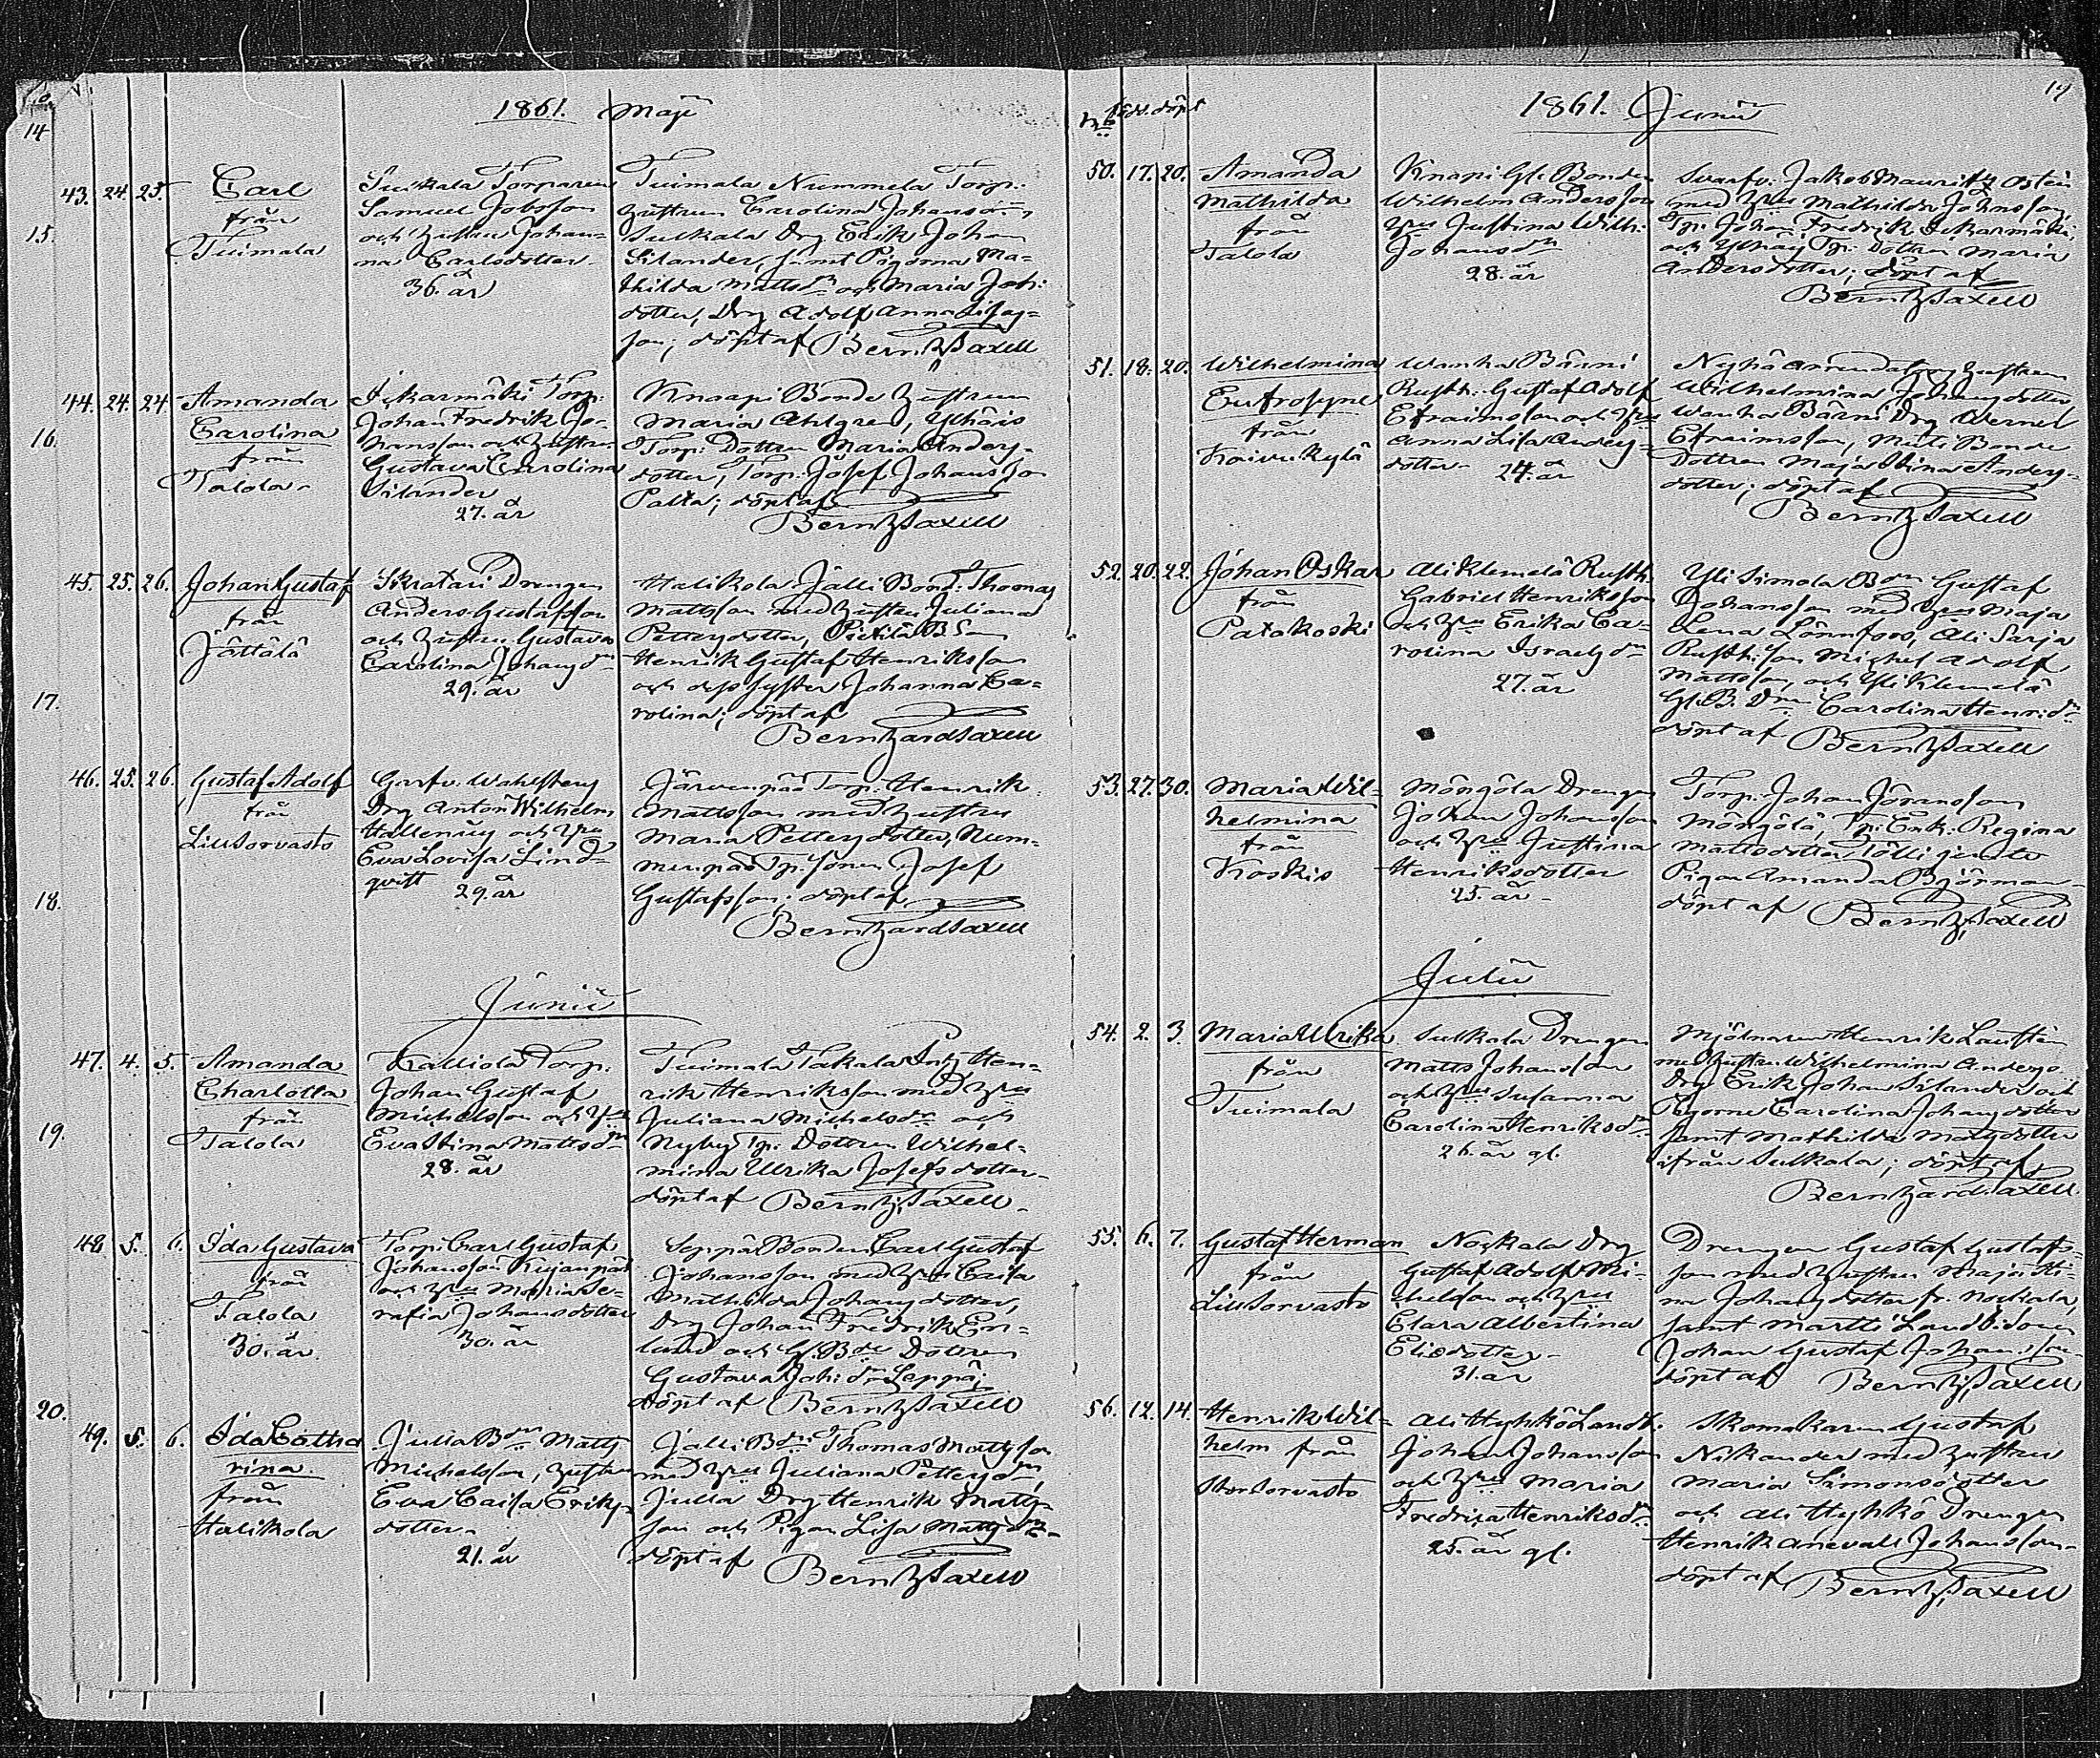 14
1861. Maji
43. 24. 25. Carl
från
Tuimala
Torparen
Samuel Jobsson
och hustrun Johan-
na Carlsdotter
36. år
Tuimala Nummela Torp.
hustrun Carolina
Sulkala Drg Erik Johan
Silander, samt Pigorna Ma-
thilda Mattsdr och Maria Joh:
dotter, Drg Adolf Anna Lisas-
son; döpt af Bernh. Saxell
15.
44. 24. 24. Amanda
Carolina
från
Talola
Torp:
Johan Fredrik Jo-
hansson och hustrun
Gustava Carolina
Silander
27. år
Knaapi Bonde hustrun
Maria Ahlgren, Ylhäis
Torp: Dottren Maria Anders-
dotter, Torp: Josef Johansson
Palta; döpt af
Bernh Saxell
16.
45. 25. 26. Johan Gustaf
från
Jottälä
Drengen
Anders Gustafsson
och hustru Gustava
Carolina Johansdr
29. år
Halikola Jälli Bond: Thomas
Mattsson med hustru Juliana
Pettersdotter, Pietilä BSon
Henrik Gustaf Henriksson
och dess syster Johanna Ca-
rolina; döpt af
Bernhard Saxell
17.
46. 25. 26. Gustaf Adolf
från
Garfv. Wahlsberg
Drg Anton Wilhelm
och hru
Eva Lovisa Lind-
qvist 29. år
Järvenpää Torp. Henrik
Mattsson med hustru
Maria Pettersdotter, Num-
menpää Tp: Sonen Josef
Gustafsson; döpt af
Bernhard Saxell
18.
Junii
47. 4. 5. Amanda
Charlotta
från
Talola
Kalliola Torp:
Johan Gustaf
Michelsson och hru
Eva Stina Mattsdr
28. år
Tuimala Takala Inh. Hen-
rik Henriksson med hru
Juliana Michelsdr och
Nyby Tp: Dottren Wilhel-
mina Ulrika Josefsdotter
döpt af Bernh. Saxell
19.
48. 5. 6. Ida Gustava
från
Talola
30. år
Torp: Carl Gustaf
Johansson
och hru Maria Se-
rafia Johansdotter
30. år
Seppä Bonden Carl Gustaf
Johansson med hru Caisa
Mathilda Johansdotter,
Drg Johan Fredrik En-
lund och Gl. Bde Dottren
Gustava Joh: dr Seppä;
döpt af Bernh Saxell
20.
49. 5. 6. Ida Catha
rina
från
Halikola
Julla Bdn Matts
Michelsson, hustru
Eva Caisa Eriks-
dotter
21. år
Jälli Bdn Thomas Mattsson
med hru Juliana Pettersdr
Julla Drg Henrik Matts-
son och Pigan Lisa Mattsdr
döpt af
Bernh Saxell
Nro född. döpt
1861. Junii
50. 17. 20. Amanda
Mathilda
från
Talola
Knapi Gl: Bonden
Wilhelm Andersson
hru Justina Wilh:
Johansdr
28. år
Svarfv: Jakob Mauritz Osten
med hru Mathilda Johnsson,
Tp: Johan Fredrik
och Ylhäis Tp: Dottren Maria
Andersdotter; döpt af
Bernh Saxell
51. 18. 20. Wilhelmina
Eufrosyne
från
Koivukylä
Wanha Bärni
Rusth: Gustaf Adolf
Efraimsson och hru
Anna Lisa Anders-
dotter
24. år
hustrun
Wilhelmina Johansdotter
Wanha Bärni Drg Wernel
Efraimsson, Bonde
Dottren Maja Stina Anders-
dotter; döpt af
Bernh Saxell
52. 20. 22. Johan Oskar
från
Patakoski
Ali Klemelä Rusth.
Gabriel Henriksson
och hru Erika Ca-
rolina Israelsdr
27. år
Yli Simola Bdn Gustaf
Johansson med hru Maja
Lena Lönnfors, Ali Sarja
Rusth: Son Michel Adolf
Mattsson, och Yli Klemelä
Gl. B. Drn Carolina Henrdr
döpt af Bernh Saxell
53. 27. 30. Maria Wil-
helmina
från
Koskis
Möngölä Drengen
Johan Johansson
och hru Justina
Henriksdotter
25. år
Torp: Johan Göransson
Möngölä, Tp: Enk: Regina
Mattsdotter
Pigan Amanda Björman
döpt af Bernh. Saxell
Julii
54. 2. 3. Maria Ulrika
från
Tuimala
Sulkala Drengen
Matts Johansson
och hru Susanna
Carolina Henriksdr
26. år gl.
Mjölnaren Henrik Lausten
med hustru Wilhelmina Andersdr
Drg Erik Johan Silander och
Carolina Johansdotter
samt Mathilda Mattsdotter
ifrån Sulkala; döpt af
Bernhard Saxell
55. 6. 7. Gustaf Herman
från
Noskala Drg
Gustaf Adolf Mi-
chelsson och hru
Clara Albertina
Eliedotter
31. år
Drengen Gustaf Gustafs-
son med hustru Maja Sti-
na Johansdotter fr. Noskala,
samt Martti Landb: sonen
Johan Gustaf Johansson
döpt af Bernh. Saxell
56. 12. 14. Henrik Wil-
helm från
Ali Hyhkö Landb.
Johan Johansson
och hru Maria
Fredrica Henriksdr
25. år gl.
Skomakaren Gustaf
Nikander med hustru
Maria Simonsdotter
och Ali Hyhkö Drengen
Henrik Anevall Johansson
döpt af Bernh. Saxell